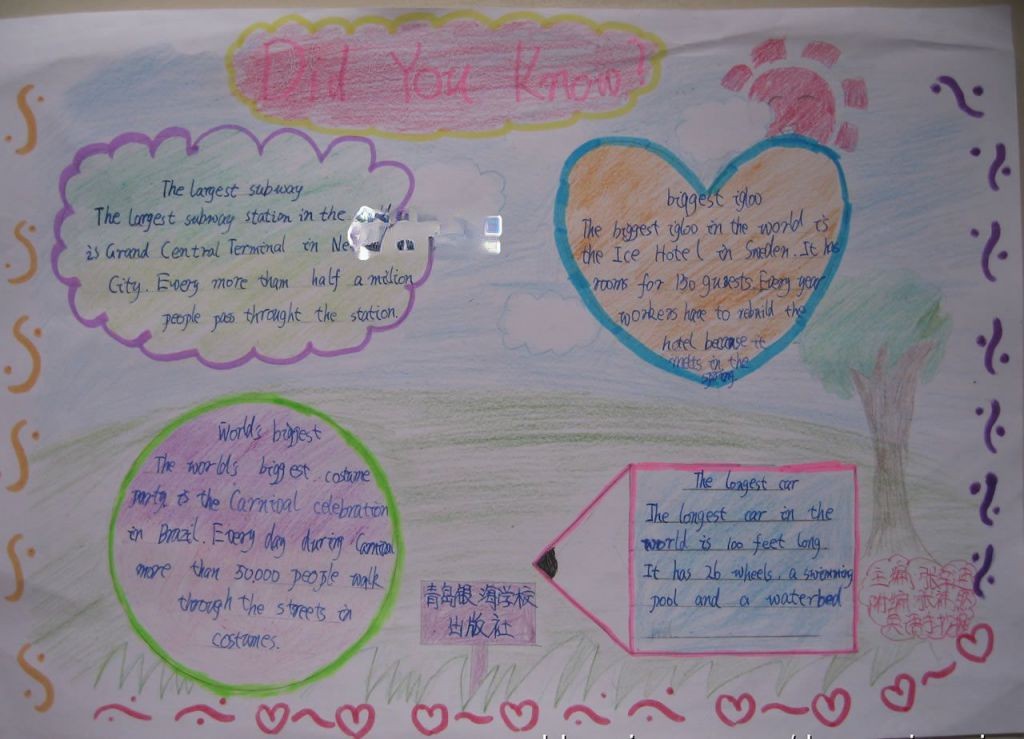 Did You Know?
The largest subway
The largest subway station in the
is Grand Central Terminal in Ne
City. Every more than half a million
people pass throught the station.
biggest igloo
The biggest igloo in the world is
the Ice Hotel in Sweden. It has
rooms for 150 guests. Every year
workers have to rebuild the
hotel because it
melts in the
spring.
World's biggest
The world's biggest costume
party is the Carnival celebration
in Brazil. Every day during Carnival
more than 50,000 people walk
through the streets in
costumes.
The longest car
The longest car in the
world is 100 feet long.
It has 26 wheels, a swimming
pool and a waterbed
青岛银海学校
出版社
主编